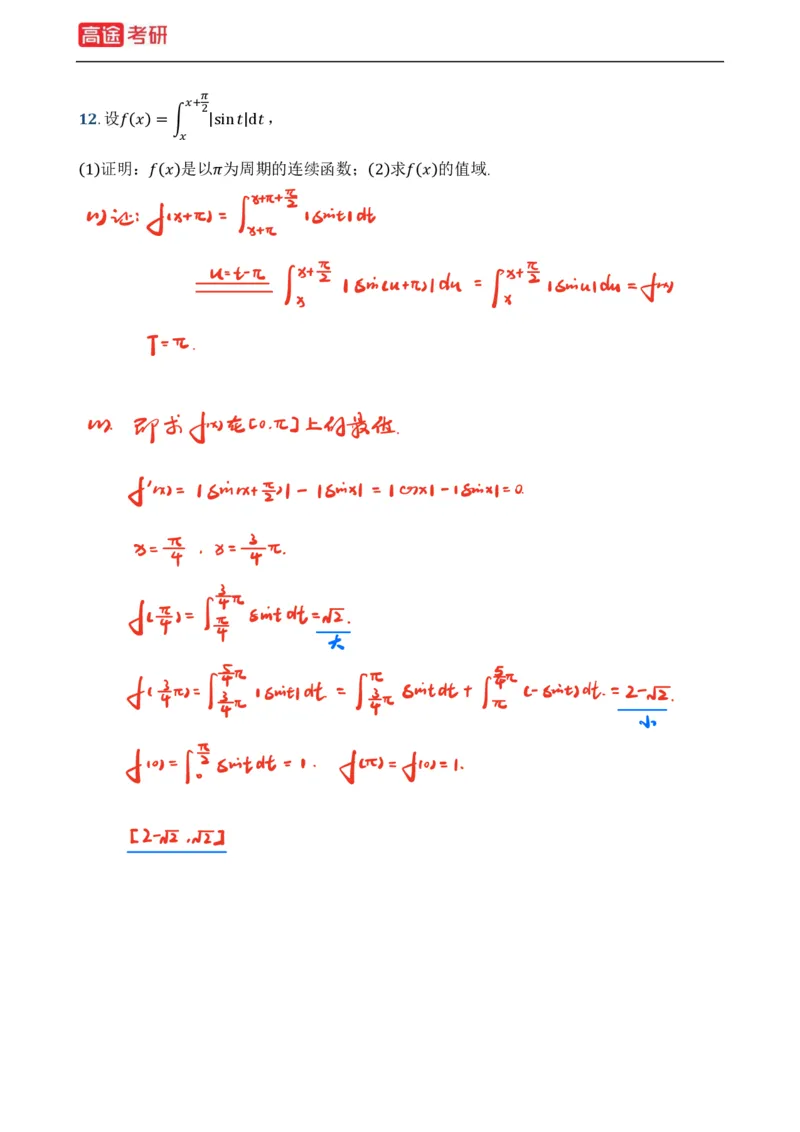 高途考研
12. 设f(x) = ∫_x^{x+π/2} |sin t|dt，
(1)证明：f(x)是以π为周期的连续函数；(2)求f(x)的值域.
(1) 证: f(x+π) = ∫_{x+π}^{x+π+π/2} |sint| dt
u=t-π ∫_x^{x+π/2} |sin(u+π)| du = ∫_x^{x+π/2} |sinu| du = f(x)
T=π.
(2). 即求 f(x) 在[0.π]上的最值.
f'(x) = |sin(x+π/2)| - |sinx| = |cosx| - |sinx| = 0.
x = π/4 . x = 3/4 π.
f(π/4) = ∫_{π/4}^{3/4 π} sint dt = √2.
大
f(3/4 π) = ∫_{3/4 π}^{5/4 π} |sint| dt = ∫_{3/4 π}^{π} sint dt + ∫_π^{5/4 π} (-sint) dt. = 2-√2.
小
f(0) = ∫_0^{π/2} sint dt = 1. f(π) = f(0) = 1.
[2-√2 , √2]